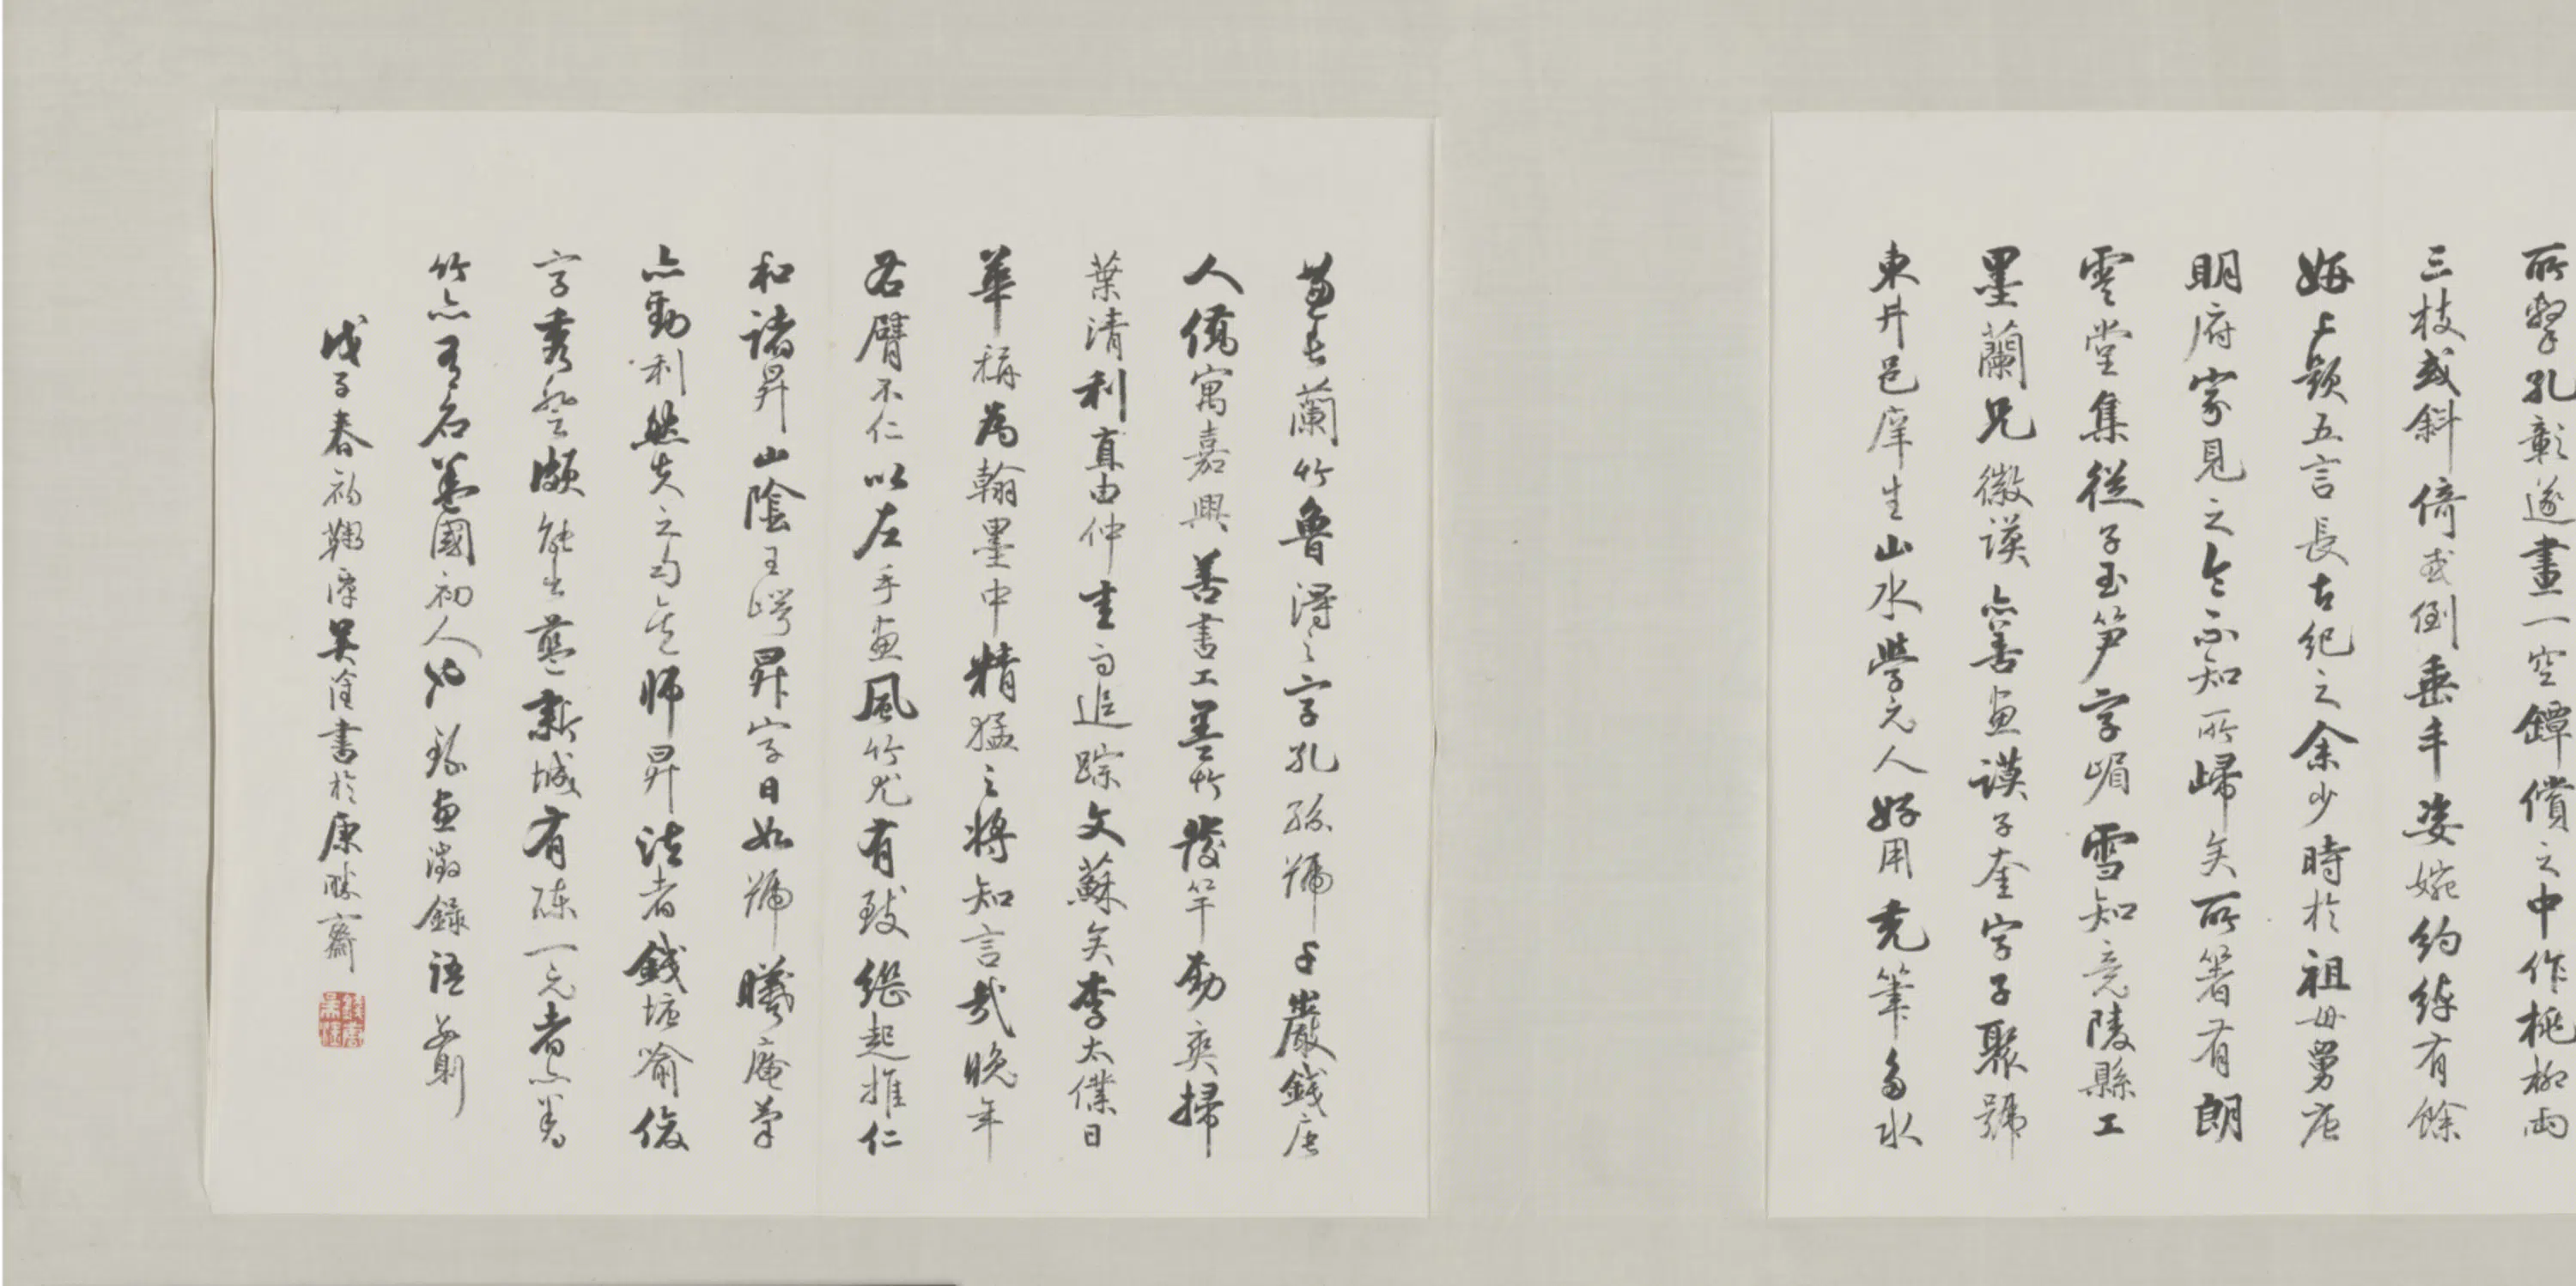 所擊孔彰遂畫一空鐔償之中作桃柳兩
三枝或斜倚或倒垂丰姿婉約綽有餘
妍上題五言長古紀之余少時於祖母舅唐
明府家見之今不知所歸矣所箸有朗
雯堂集從子玉笋字嵋雪知竟陵縣工
墨蘭兄徽謨亦善畫謨子奎字子聚號
東井邑庠生山水學元人好用禿筆多水
蘭竹魯得之字孔孫號千巖錢唐
人僑寓嘉興善書工墨竹發竿勁爽掃
葉清利直由仲圭而追踪文蘇矣李太僕日
華稱為翰墨中精猛之將知言哉晚年
右臂不仁以左手畫風竹尤有致繼起推仁
和諸昇山陰王崿昇字日如號曦庵筆
亦勁利然失之勻矣師昇法者錢塘俞俊
字秀登頗能出藍新城有陳一元者亦善
竹亦有名蓋國初人也 畫徵錄語
戊子春初鞠潭吳淦書於康勝齋
錢唐吳淦